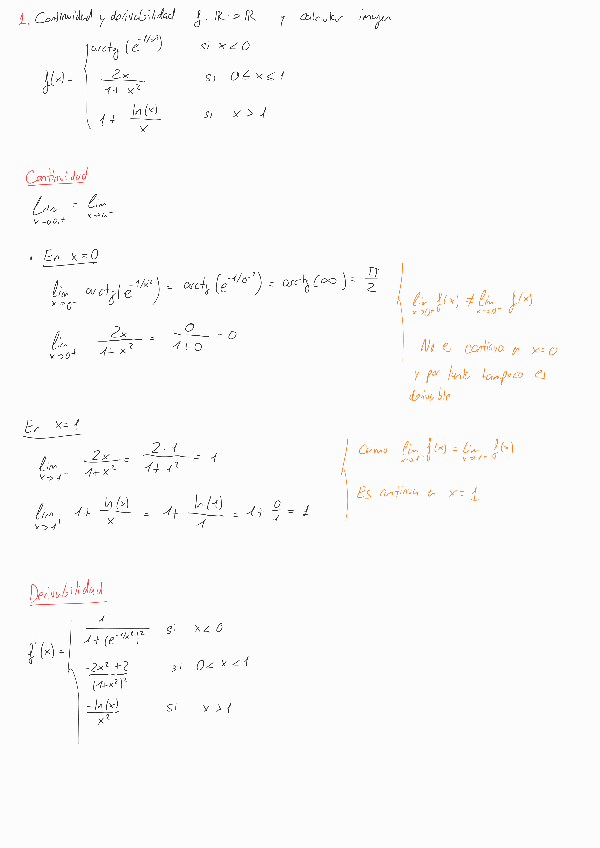 1. Continuidad y derivabilidad f: ℝ → ℝ y calcular imagen
f(x) = { arctg (e^{-1/x²}) si x < 0
2x / (1 + x²) si 0 ≤ x ≤ 1
1 + ln(x)/x si x > 1
Continuidad
• En x = 0
lim_{x→0⁻} arctg (e^{-1/x²}) = arctg (e^{-1/0⁻²}) = arctg (∞) = π/2
lim_{x→0⁺} 2x / (1 + x²) = 0 / (1 + 0) = 0
lim_{x→0⁻} f(x) ≠ lim_{x→0⁺} f(x)
No es continua en x = 0
y por tanto tampoco es
derivable
En x = 1
lim_{x→1⁻} 2x / (1 + x²) = 2 · 1 / (1 + 1²) = 1
lim_{x→1⁺} 1 + ln(x)/x = 1 + ln(1)/1 = 1 + 0/1 = 1
Como lim_{x→1⁻} f(x) = lim_{x→1⁺} f(x)
Es continua en x = 1
Derivabilidad
f'(x) = { 1 / (1 + (e^{-1/x²})²) si x < 0
(-2x² + 2) / (1 + x²)² si 0 < x < 1
-ln(x) / x² si x > 1